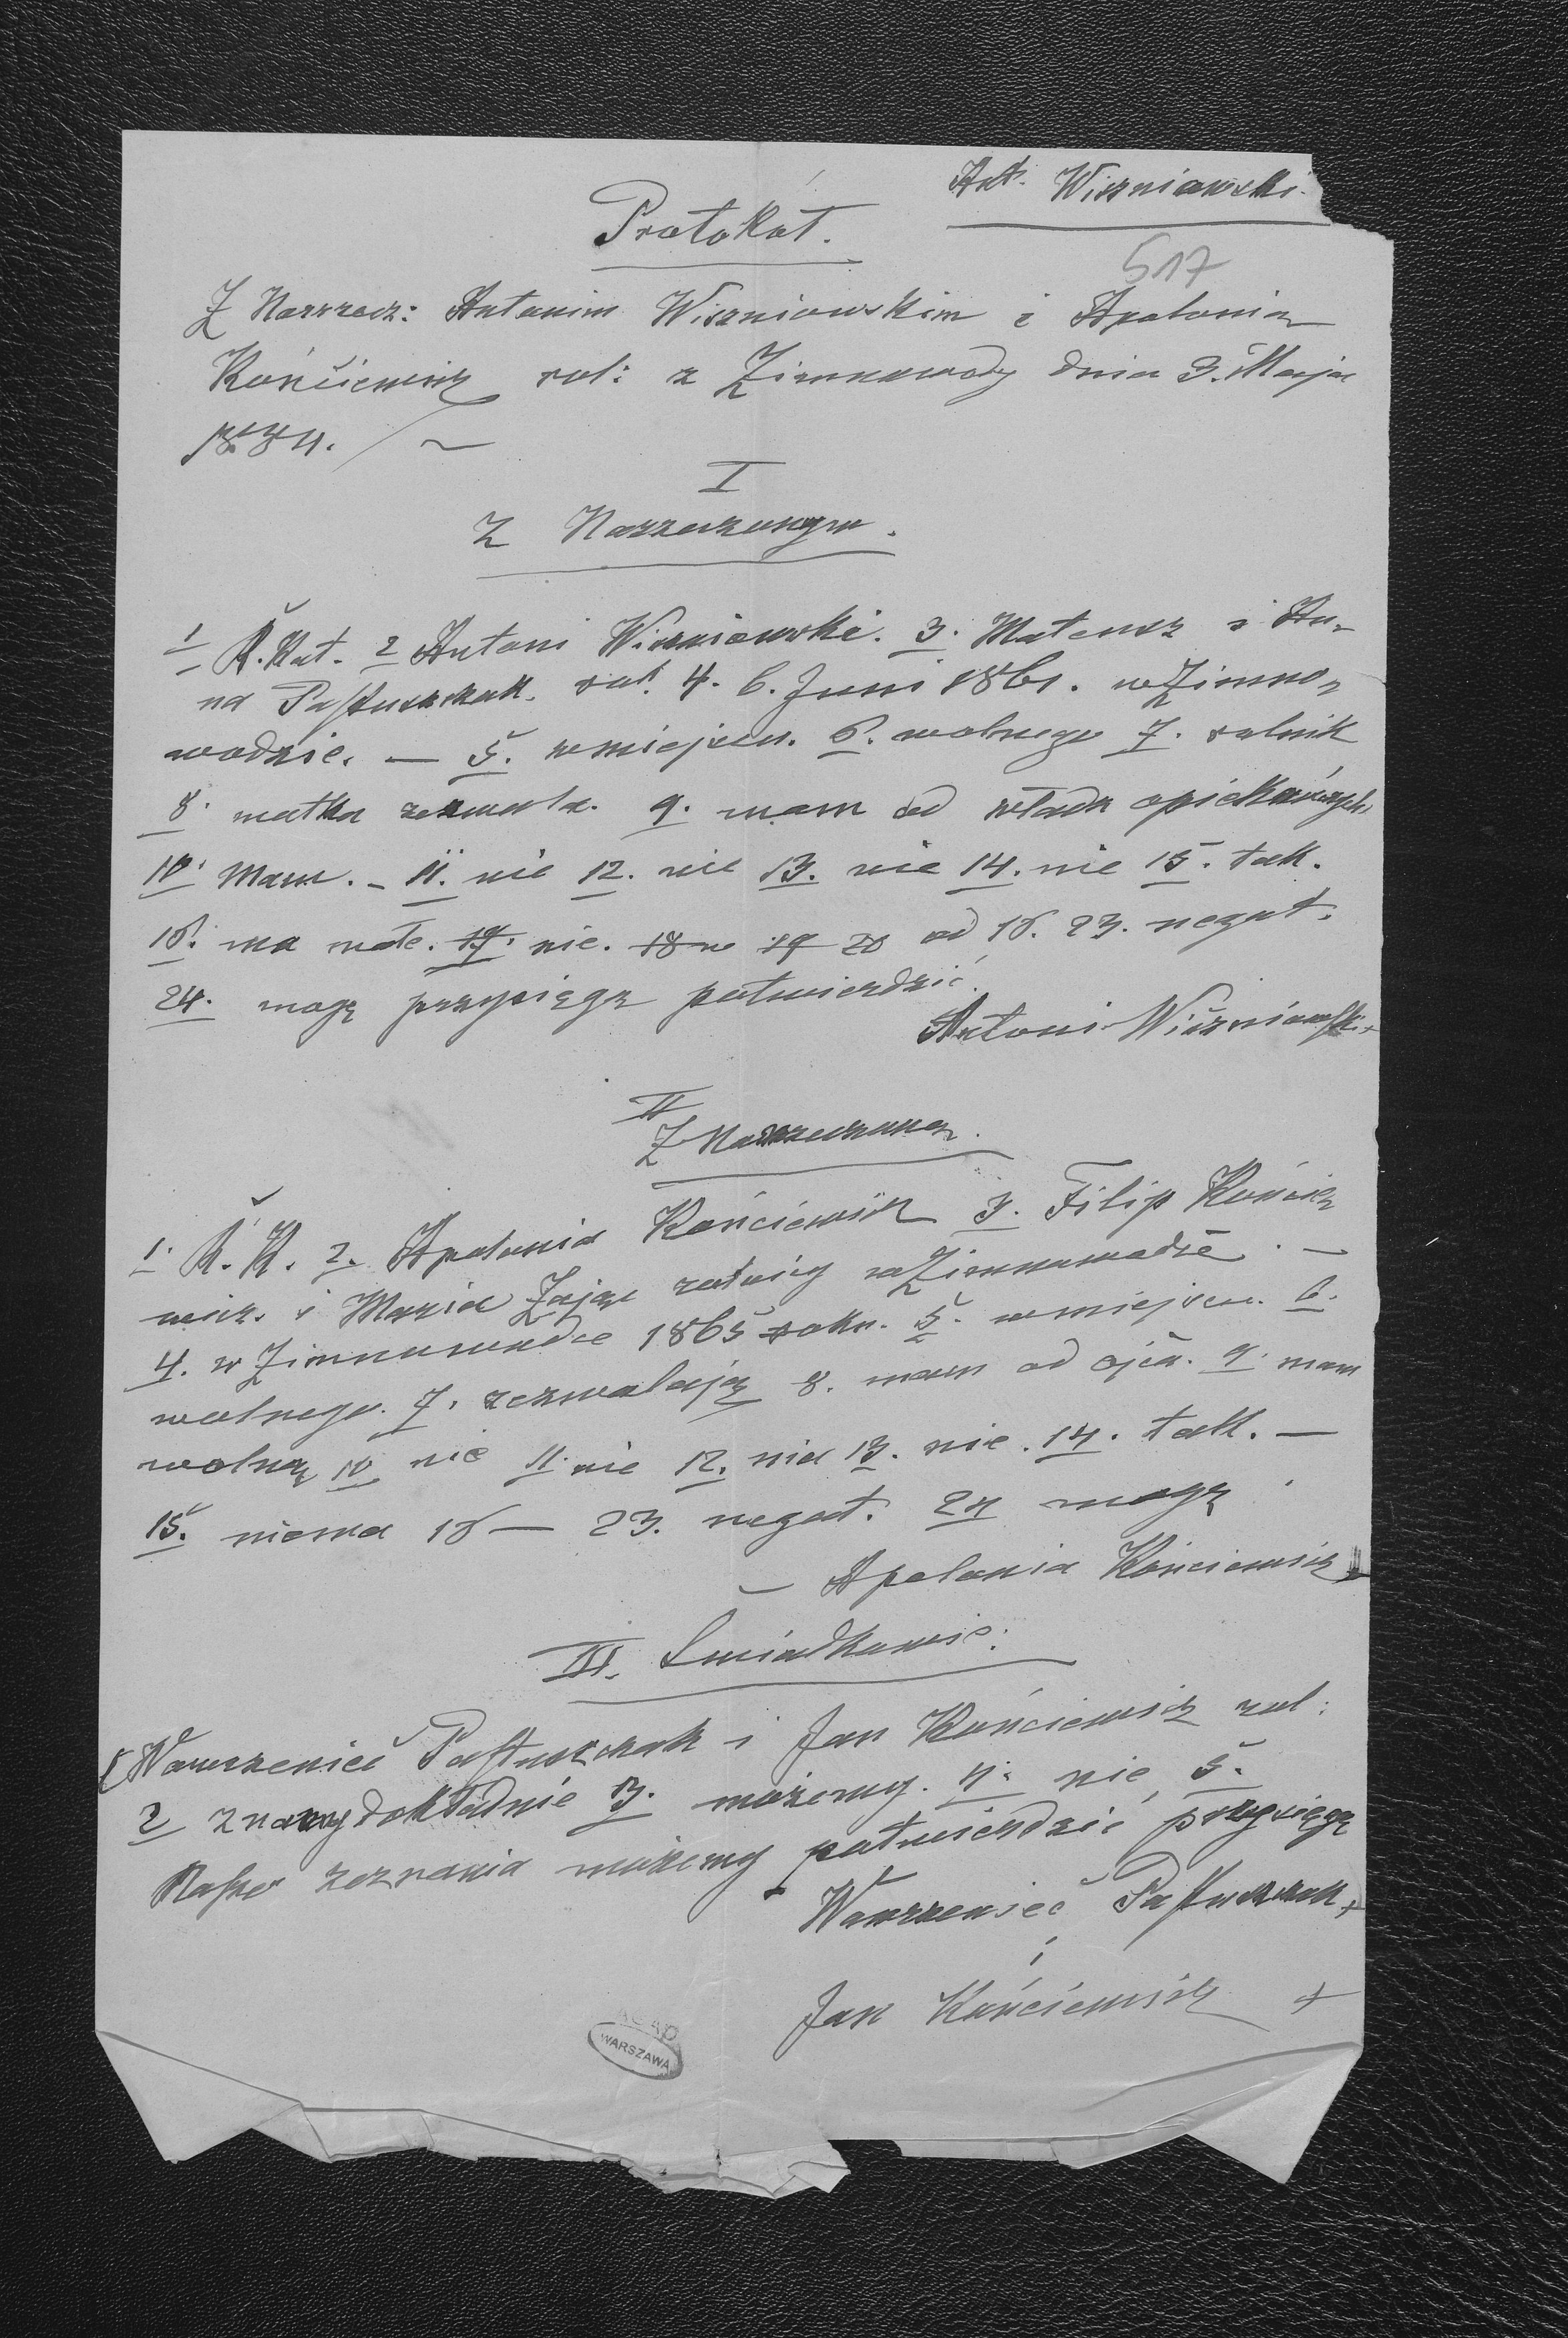 Ant. Wiszniowski.
Protokół.
517
Z Narzecz: Antonim Wiszniowskim i Apolonią
Kończiewicz rol: z Zimnowody dnia 3. Maja
1884. /~
I
Z Narzeczonym.
1 R. Kat. 2 Antoni Wiszniowski. 3. Mateusz i An-
na Pastuszczak. rol. 4. 6. Juni 1861. w Zimno-
wodzie. — 5. w miejscu. 6. wolnego 7. rolnik
8. matka zezwala. 9. mam od władz opiekuńczych
10. Mam. - 11. nie 12. nie 13. nie 14. nie 15. tak.
16. ma 17. nie. 18 19 20 od 18. 23. negat.
24. mogę przysięgą potwierdzić.
Antoni Wiszniowski +
II
Z Narzeczoną.
1. R. K. 2. Apolonia Kończiewicz 3. Filip Kończie
wicz. i Maria Zając rolnicy w Zimnowodzie. —
4. w Zimnowodzie 1865 roku. 5. w miejscu. 6.
wolnego. 7. zezwalają 8. mam od ojca. 9. mam
wolną 10 nie 11. nie 12. nie 13. nie. 14. tak. —
15. niema 16 — 23. negat. 24 mogę.
— Apolonia Kończiewicz
III. Świadkowie:
1 Wawrzeniec Pastuszczak i Jan Kończiewicz rol:
2 znamy dokładnie 3. możemy. 4. nie 5.
Nasze zeznania możemy potwierdzić przysięgą
Wawrzeniec Pastuszczak +
i
Jan Kończiewicz +
WARSZAWA